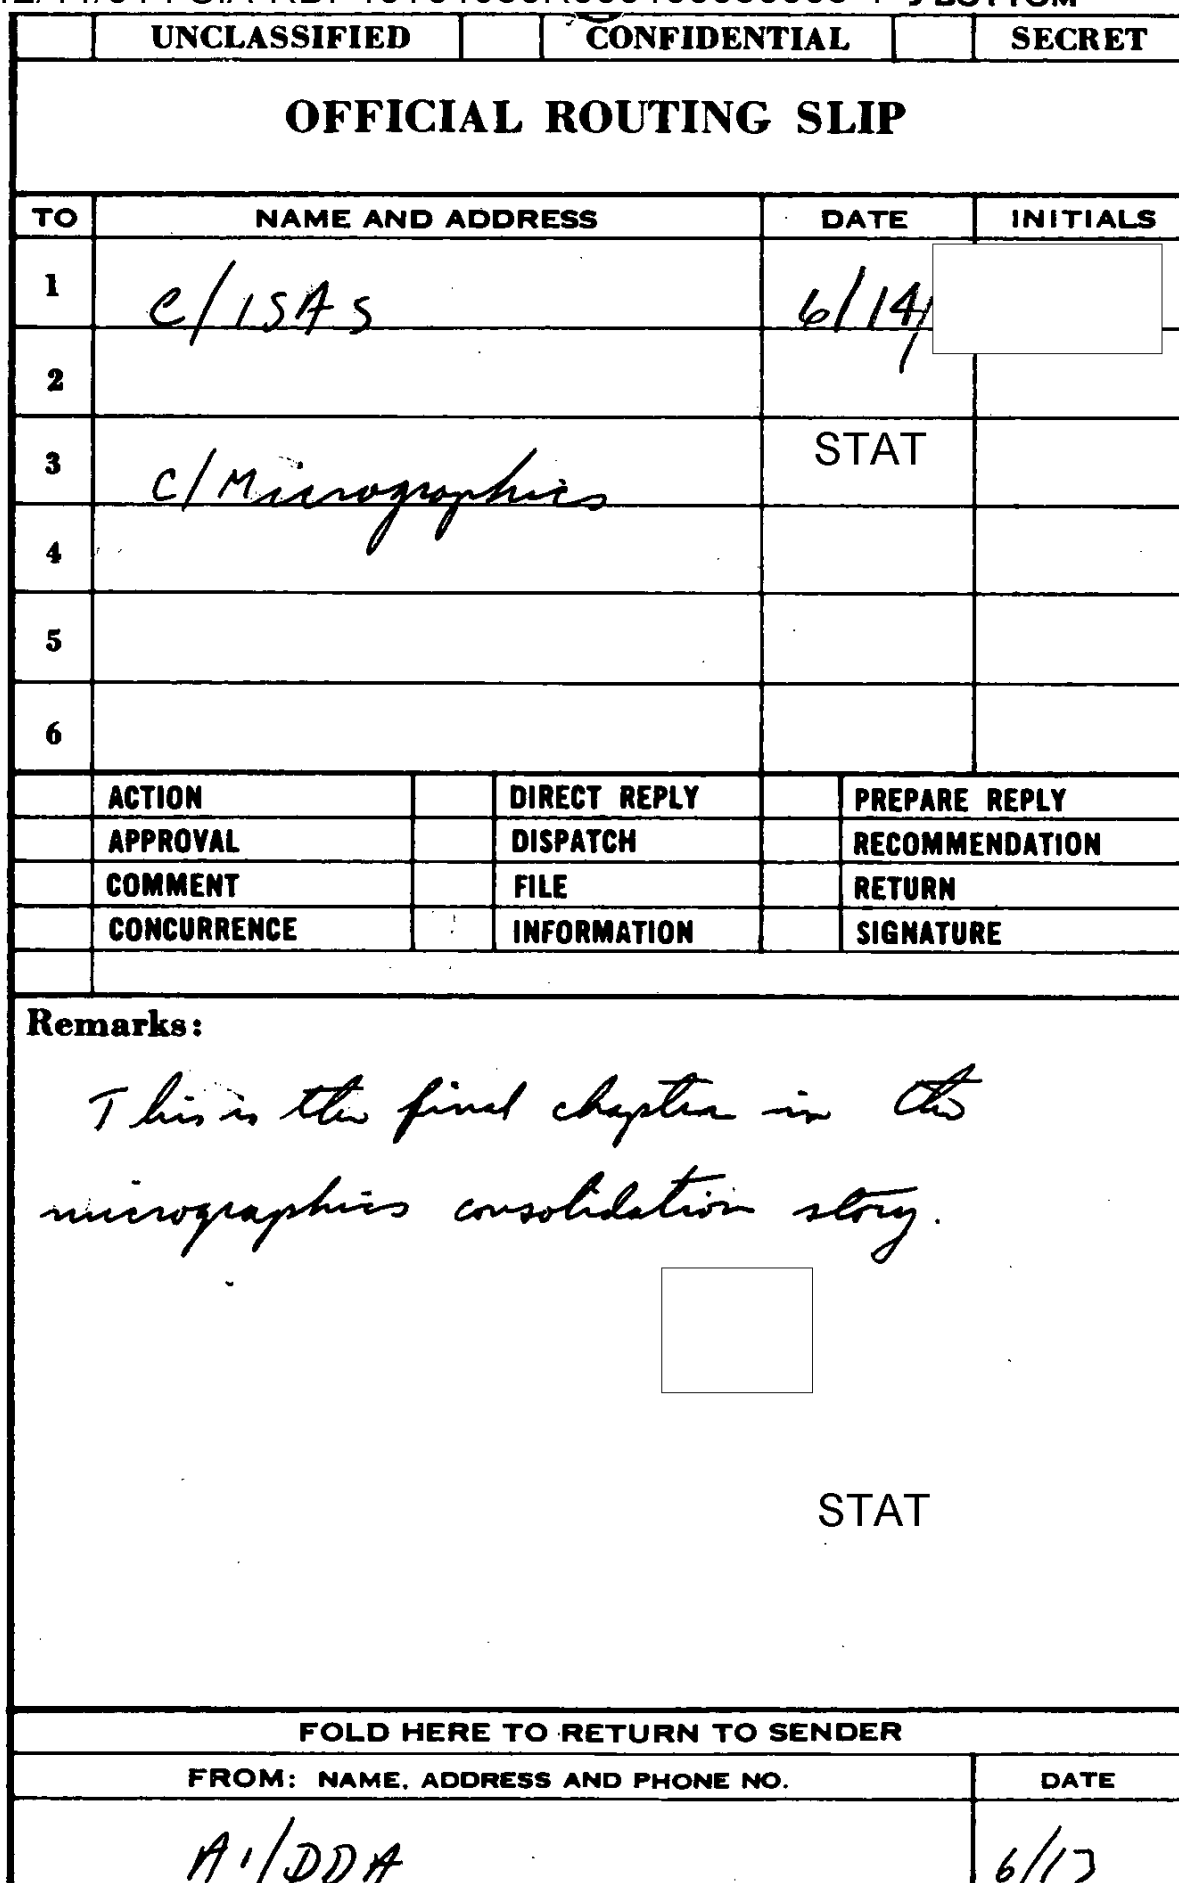 UNCLASSIFIED CONFIDENTIAL SECRET
OFFICIAL ROUTING SLIP
TO NAME AND ADDRESS DATE INITIALS
1 C/ISAS 6/14/
2
3 C/Micrographics STAT
4
5
6
ACTION DIRECT REPLY PREPARE REPLY
APPROVAL DISPATCH RECOMMENDATION
COMMENT FILE RETURN
CONCURRENCE INFORMATION SIGNATURE
Remarks:
This is the final chapter in the
micrographics consolidation story.
STAT
FOLD HERE TO RETURN TO SENDER
FROM: NAME, ADDRESS AND PHONE NO. DATE
6/13